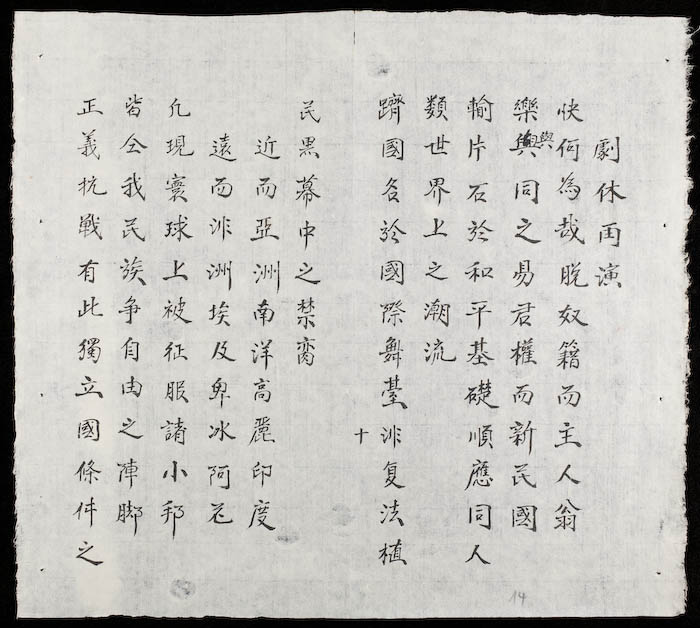 劇休再演
快何為哉脫奴籍而主人翁
樂與同之易君權而新民國
與
輸片石於和平基礎順應同人
類世界上之潮流
躋國名於國際舞臺非复法植
十
民黑幕中之禁脔
近而亞洲南洋高麗印度
遠而非洲埃及卑冰阿
凡現寰球上被征服諸小邦
皆仝我民族爭自由之陣脚
正義抗戰有此獨立國條件之
14